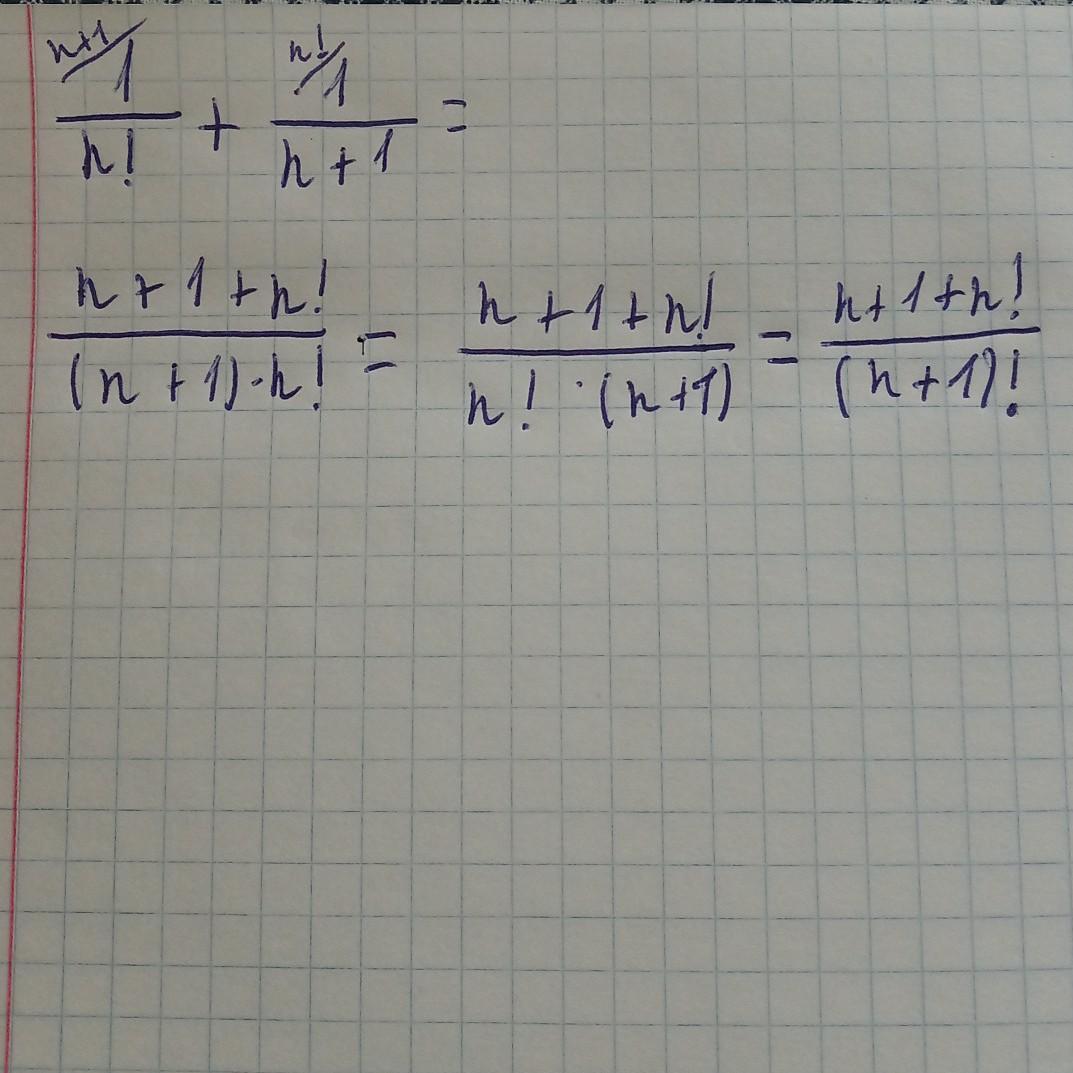 n+1/1/n! + n!/1/n + 1 =
n + 1 + n!/(n + 1)·n! = n + 1 + n!/n! · (n+1) = n + 1 + n!/(n + 1)!